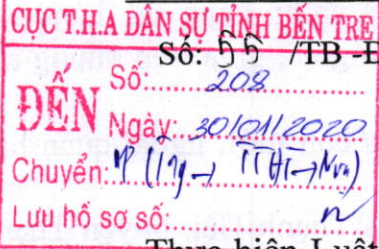 CỤC T.H.A DÂN SỰ TỈNH BẾN TRE
Số: 55 /TB -Đ
ĐẾN
Số: 208
Ngày: 30/01/2020
Chuyển:
Lưu hồ sơ số:
Thực hiện Luật